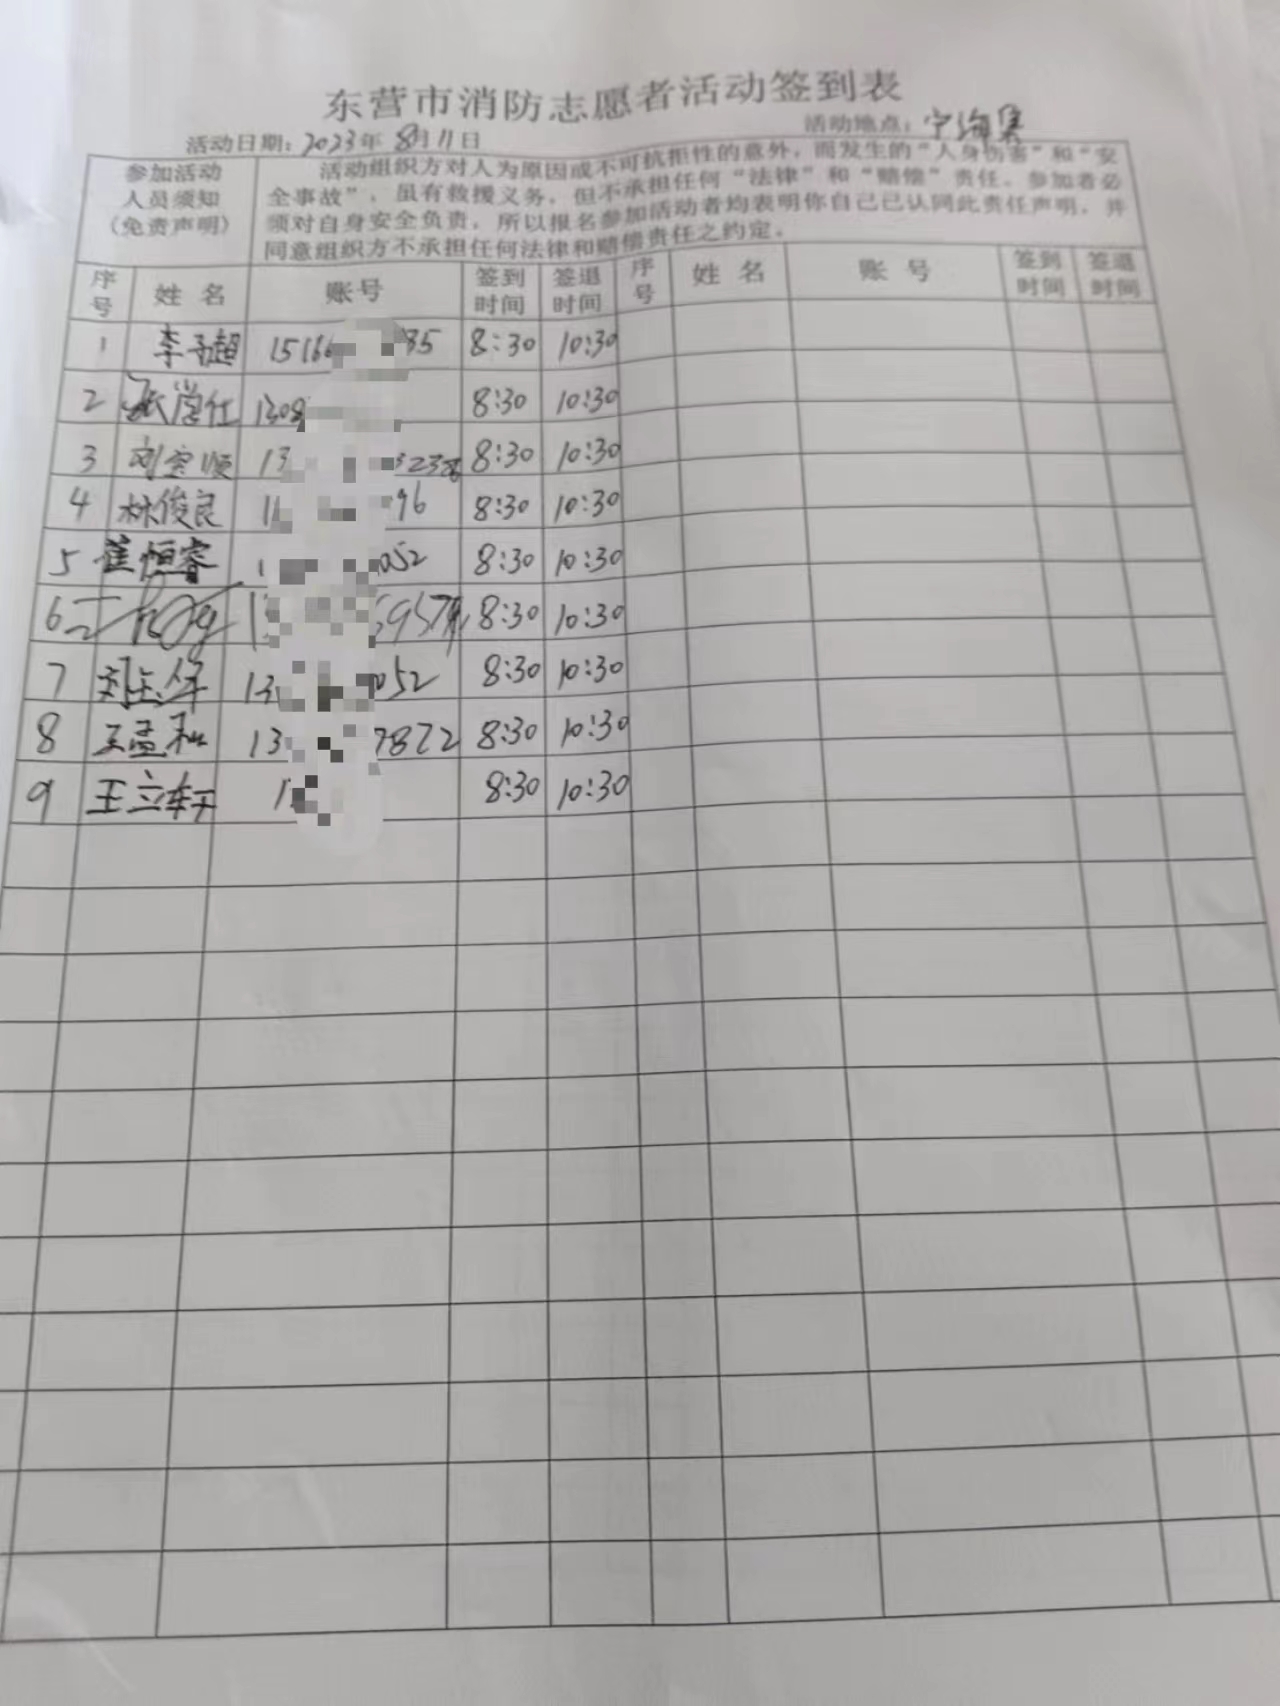 东营市消防志愿者活动签到表
活动日期：2023年 8月11日 活动地点：宁海集
参加活动人员须知（免责声明）
活动组织方对人为原因或不可抗拒性的意外，而发生的“人身伤害”和“安
全事故”，虽有救援义务，但不承担任何“法律”和“赔偿”责任。参加者必
须对自身安全负责，所以报名参加活动者均表明你自己已认同此责任声明，并
同意组织方不承担任何法律和赔偿责任之约定。
序号 姓名 账号 签到时间 签退时间 序号 姓名 账号 签到时间 签退时间
1 李子超 1516 85 8:30 10:30
2 张学仕 1308 8:30 10:30
3 刘宝顺 13 8:30 10:30
4 林俊良 96 8:30 10:30
5 崔恒睿 052 8:30 10:30
6 8:30 10:30
7 13 052 8:30 10:30
8 王孟和 13 7872 8:30 10:30
9 王立轩 8:30 10:30